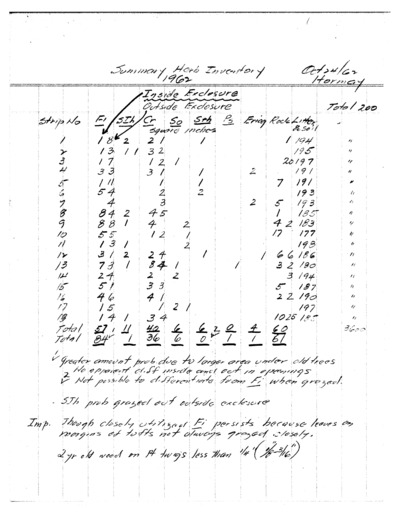 Summary Herb Inventory Oct 24/62
1962 Hormay
Inside Exclosure
Outside Exclosure Total 200
Strip No Fi SIh Cr So Sph Po Ering Rock Litter
square inches & soil
1 1 8 2 2 1 1 1 194 "
2 1 3 1 1 3 2 195 "
3 1 7 1 2 1 20 197 "
4 3 3 3 1 1 2 191 "
5 1 1 1 1 7 191 "
6 5 4 2 2 193 "
7 4 3 2 5 193 "
8 8 4 2 4 5 1 185 "
9 8 8 1 4 2 4 2 183 "
10 5 5 1 2 1 17 177 "
11 1 3 1 2 193 "
12 3 1 2 2 4 1 1 6 6 186 "
13 7 3 1 3 4 1 1 3 2 180 "
14 2 4 2 2 3 194 "
15 5 1 3 3 5 187 "
16 4 6 4 1 2 2 190 "
17 1 5 1 2 1 197 "
18 1 4 1 3 4 10 25 "
Total 57 11 40 6 6 2 0 4 60 3600
Total 84 1 36 6 0 1 1 67
Greater amount prob due to larger area under old trees
2 No apparent diff inside and out in openings
Not possible to differentiate from Fi when grazed.
. SIh prob grazed out outside exclosure
Imp. Though closely utilized Fi persists because leaves on
margins of tufts not always grazed closely.
2 yr old wood on Pt twigs less than